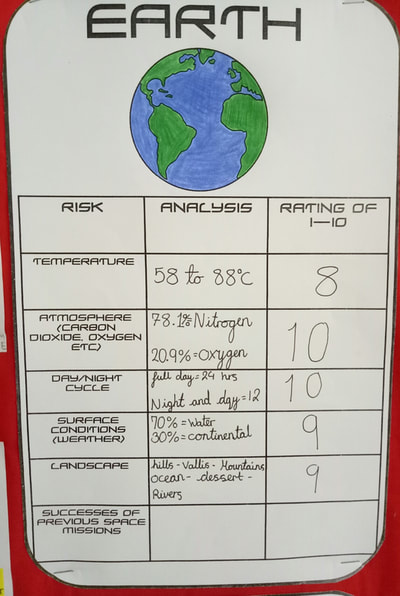 EARTH
RISK ANALYSIS RATING OF
1-10
TEMPERATURE
58 to 88°C 8
ATMOSPHERE
(CARBON
DIOXIDE, OXYGEN
ETC)
78.1%=Nitrogen
20.9%=Oxygen
10
DAY/NIGHT
CYCLE
full day=24 hrs
Night and day=12
10
SURFACE
CONDITIONS
(WEATHER)
70%=Water
30%=continental
9
LANDSCAPE
hills-Vallis-Mountains
ocean-dessert-
Rivers
9
SUCCESSES OF
PREVIOUS SPACE
MISSIONS